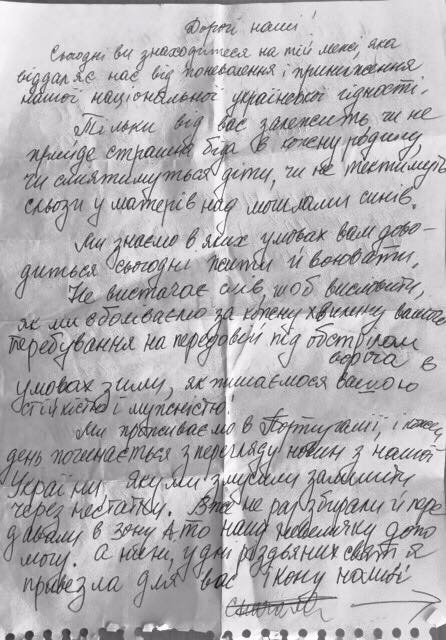 Дорогі наші!
Сьогодні ви знаходитеся на тій межі, яка
віддаляє нас від поневолення і приниження
нашої національної української гідності.
Тільки від вас залежить чи не
прийде страшна біда в кожну родину,
чи сміятимуться діти, чи не тектимуть
сльози у матерів над могилами синів.
Ми знаємо в яких умовах вам дово-
диться сьогодні жити й воювати,
Не вистачає слів, щоб висловити,
як ми вболіваємо за кожну хвилину вашого
перебування на передовій під обстрілом
ворога в
умовах зими, як пишаємося вашою
стійкістю і мужністю!
Ми проживаємо в Португалії, і кожен
день починається з перегляду новин з нашої
України, яку ми змушені залишити
через нестатки. Вже не раз збирали й пере
давали в зону АТО нашу невеличку допо
могу. А нині, у дні різдвяних свят я
привезла для вас ікону нашої